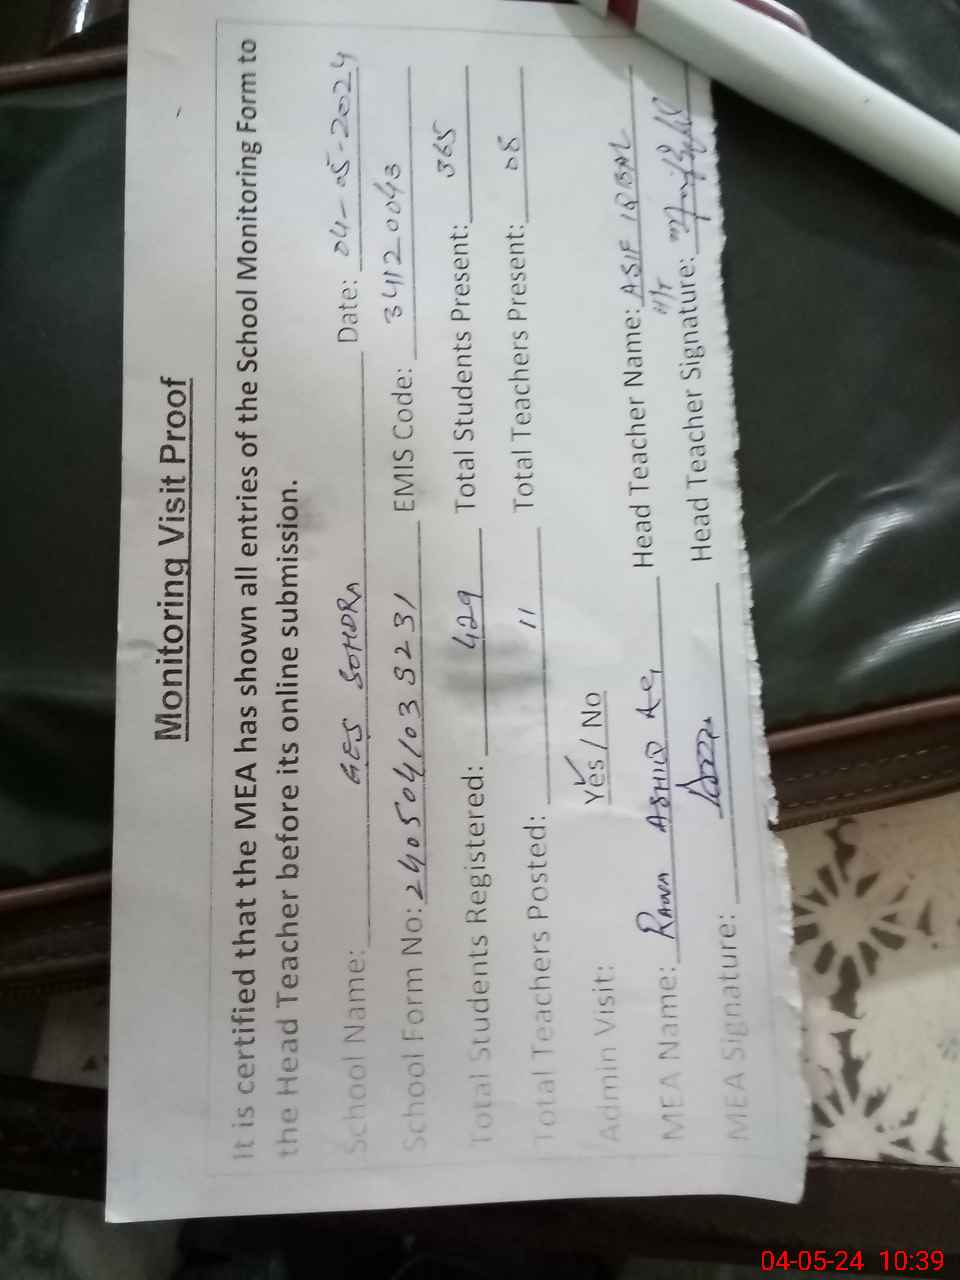 Monitoring Visit Proof
It is certified that the MEA has shown all entries of the School Monitoring Form to
the Head Teacher before its online submission.
School Name: GES SOHDRA Date: 04-05-2024
School Form No: 2405041038231 EMIS Code: 34120043
Total Students Registered: 429 Total Students Present: 365
Total Teachers Posted: 11 Total Teachers Present: 08
Admin Visit: Yes / No
MEA Name: RANA ASHIQ Head Teacher Name: ASIF IQBAL
H/T
MEA Signature: Head Teacher Signature:
04-05-24 10:39